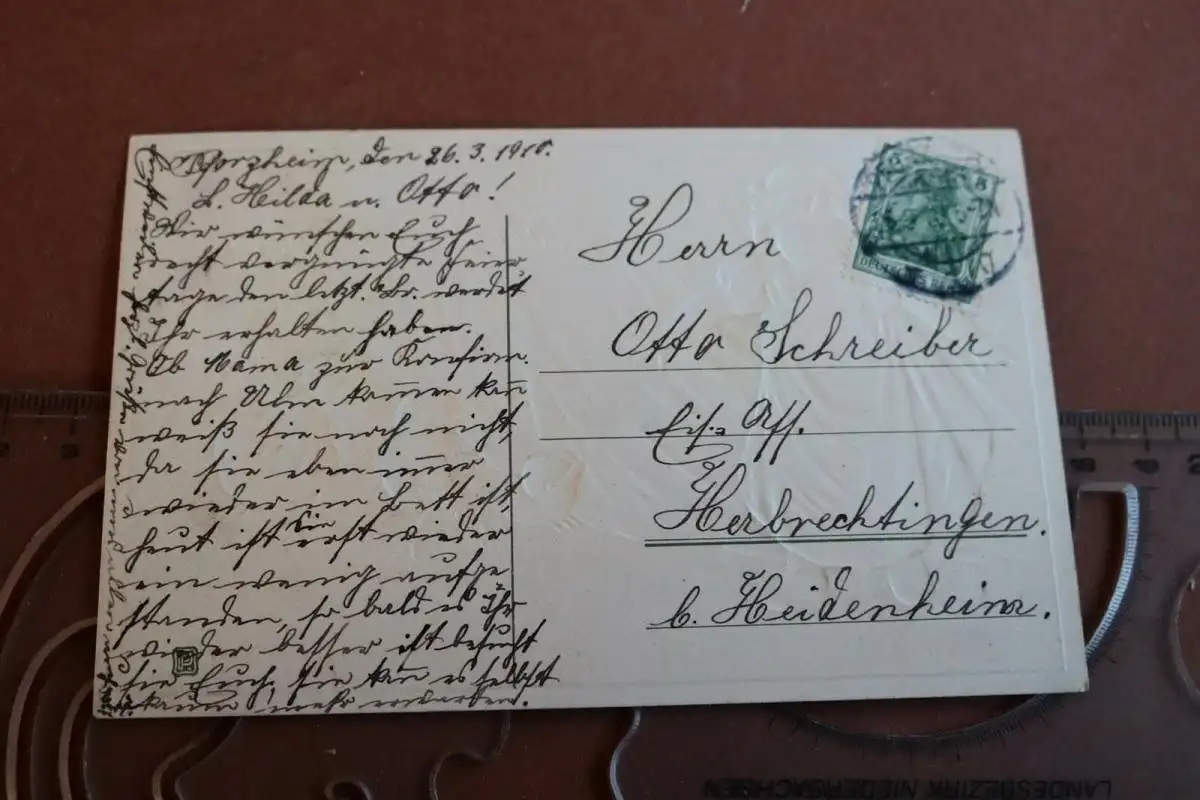 Pforzheim, den 26.3.1910.
L. Hilda u. Otto!
Wir wünschen Euch
recht vergnügte Feier
tage den letzt. Br. werdet
Ihr erhalten haben.
Ob Mama zur Konfirm.
nach Ulm kom̄en kan̄
weiß sie noch nicht,
da sie eben im̄er
wieder im Bett ist,
heut ist sie erst wieder
ein wenig aufge
standen, so bald es Ihr
wieder besser ist besucht
sie Euch, sie kan̄ es selbst
kaum mehr erwarten.
Herrn
Otto Schreiber
Eis. Ass.
Herbrechtingen.
b. Heidenheim.
5
DEUTSCHES REICH
LANDESBEZIRK NIEDERSACHSEN